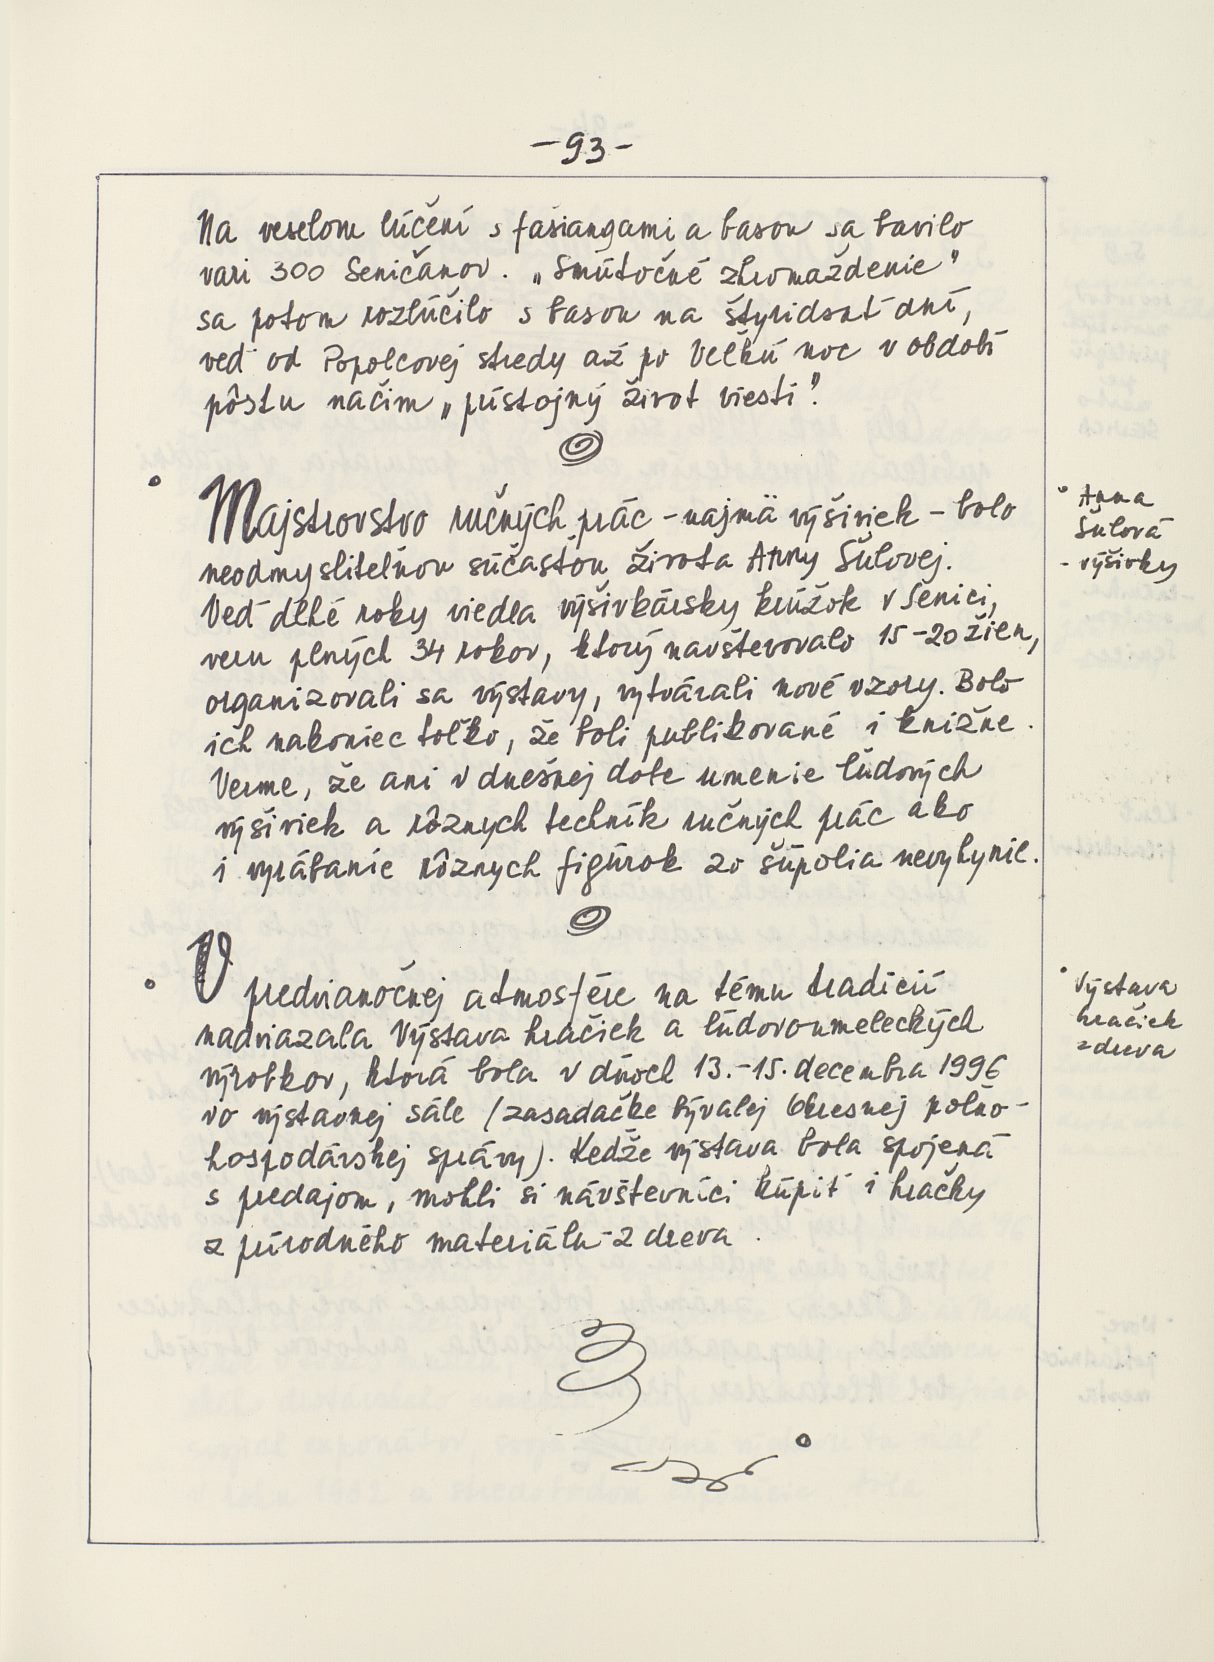 -93-
Na veselom lúčení s fašiangami a basou sa bavilo
vari 300 Seničanov. „Smútočné zhromaždenie"
sa potom rozlúčilo s basou na štyridsať dní,
veď od Popolcovej stredy až po Veľkú noc v období
pôstu načim „pústojný život viesti".
Majstrovstvo ručných prác - najmä výšiviek - bolo
neodmysliteľnou súčasťou života Anny Šulovej.
Veď dlhé roky viedla výšivkársky krúžok v Senici,
veru plných 34 rokov, ktorý navštevovalo 15-20 žien,
organizovali sa výstavy, vytvárali nové vzory. Bolo
ich nakoniec toľko, že boli publikované i knižne.
Verme, že ani v dnešnej dobe umenie ľudových
výšiviek a rôznych techník ručných prác ako
i vyrábanie rôznych figúrok zo šúpolia nevyhynie.
Anna
Šulová
- výšivky
V predvianočnej atmosfére na tému tradícií
nadviazala Výstava hračiek a ľudovoumeleckých
výrobkov, ktorá bola v dňoch 13.-15. decembra 1996
vo výstavnej sále (zasadačke bývalej Okresnej poľno-
hospodárskej správy). Keďže výstava bola spojená
s predajom, mohli si návštevníci kúpiť i hračky
z prírodného materiálu - z dreva.
Výstava
hračiek
z dreva